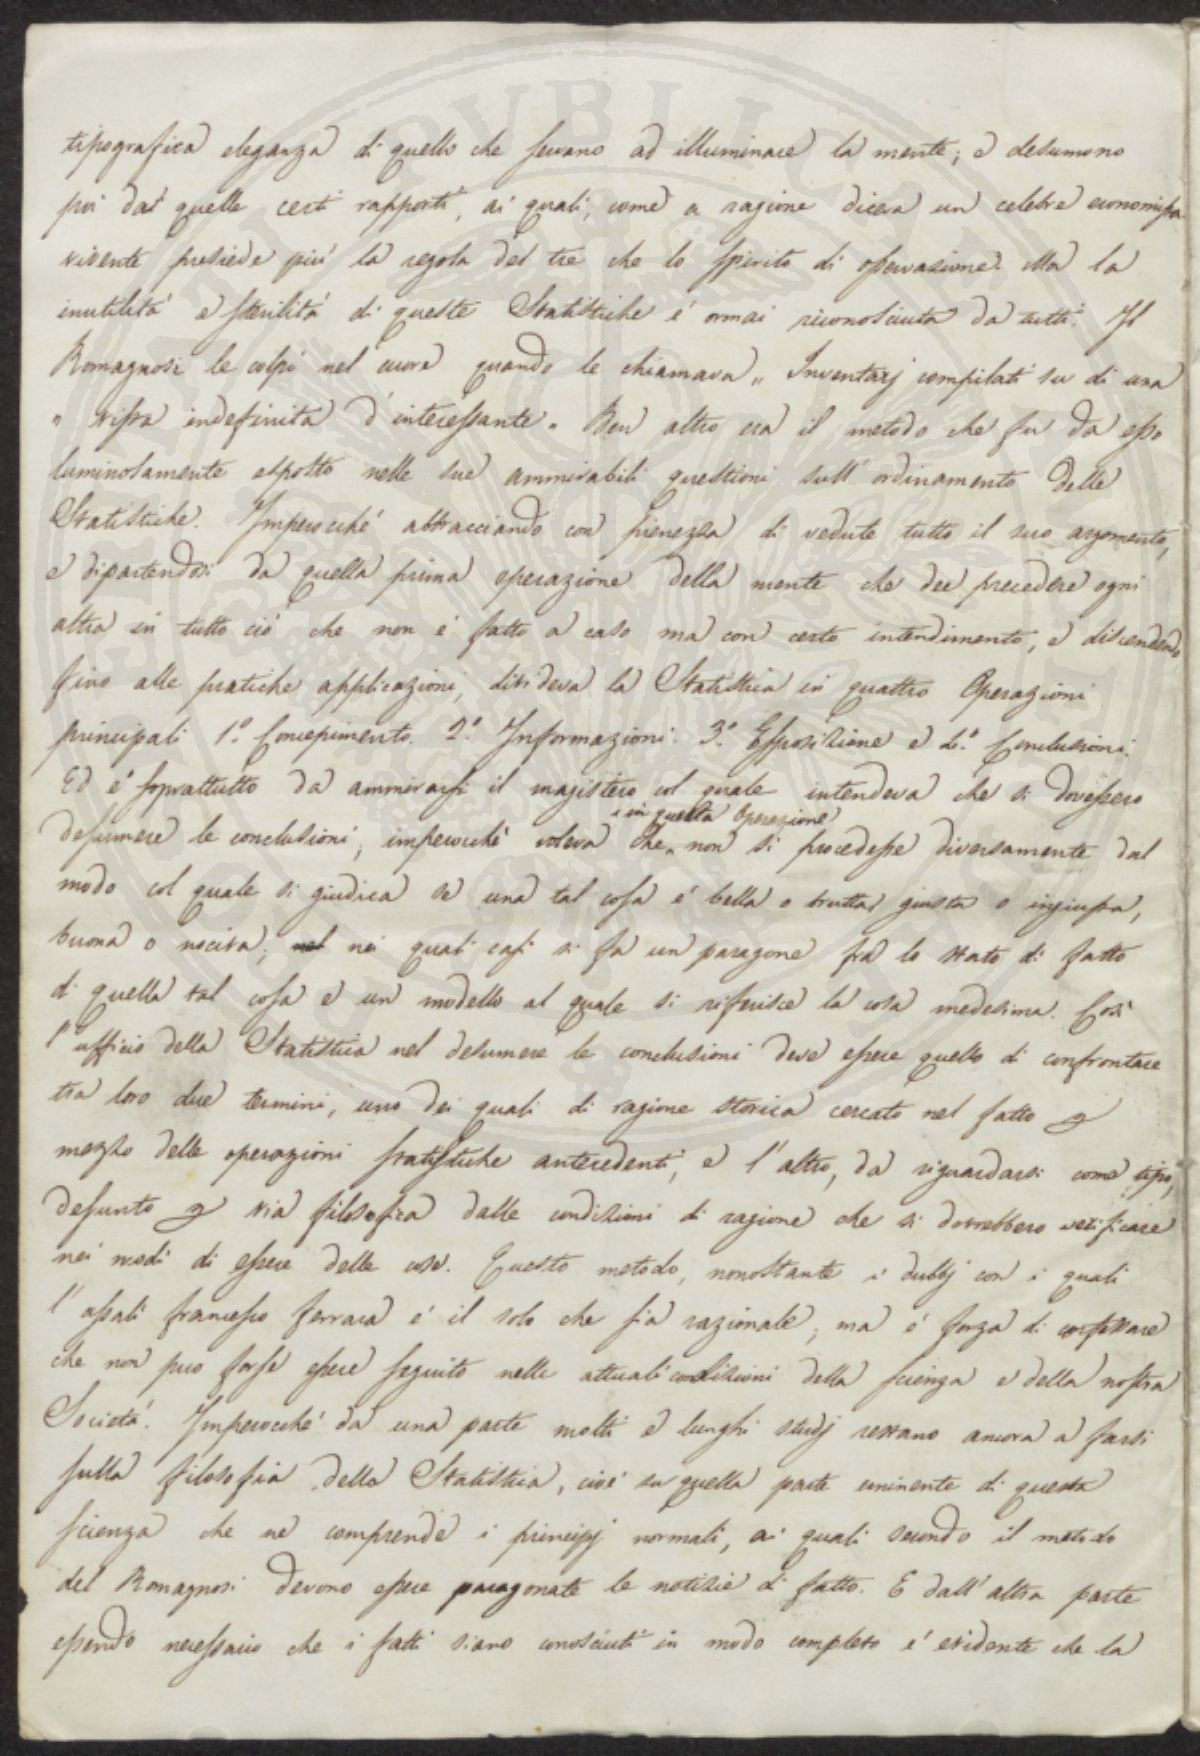 tipografica eleganza di quello che servano ad illuminare la mente; e desumono
poi da quelle certi rapporti, ai quali, come a ragione diceva un celebre economista
vivente presiede più la regola del tre che lo spirito di osservazione. Ma la
inutilità e sterilità di queste Statistiche é ormai riconosciuta da tutti. Il
Romagnosi le colpì nel cuore quando le chiamava „ Inventarj compilati su di una
„ vista indefinita d'interessante „ Ben altro era il metodo che fu da esso
luminosamente esposto nelle sue ammirabili questioni sull'ordinamento delle
Statistiche. Imperocché abbracciando con pienezza di vedute tutto il suo argomento,
e dipartendosi da quella prima operazione della mente che dee precedere ogni
altra in tutto ciò che non é fatto a caso ma con certo intendimento, e discendendo
fino alle pratiche applicazioni, divideva la Statistica in quattro Operazioni
principali 1.° Concepimento. 2.° Informazioni. 3.° Esposizione e 4.° Conclusioni.
Ed é soprattutto da ammirarsi il magistero col quale intendeva che si dovessero
in questa Operazione
desumere le conclusioni; imperocché voleva che non si procedesse diversamente dal
modo col quale si giudica se una tal cosa é bella o brutta, giusta o ingiusta,
buona o nociva; nei quali casi si fa un paragone fra lo stato di fatto
di quella tal cosa e un modello al quale si riferisce la cosa medesima. Così
l'ufficio della Statistica nel desumere le conclusioni deve essere quello di confrontare
tra loro due termini, uno dei quali di ragione storica cercato nel fatto p
mezzo delle operazioni statistiche antecedenti, e l'altro, da riguardarsi come tipo,
desunto p via filosofica dalle condizioni di ragione che si dovrebbero verificare
nei modi di essere delle cose. Questo metodo, nonostante i dubbj con i quali
l'assalì Francesco Ferrara é il solo che sia razionale; ma é forza di confessare
che non puo forse essere seguito nelle attuali condizioni della scienza e della nostra
Società. Imperocché da una parte molti e lunghi studj restano ancora a farsi
sulla filosofia della Statistica, cioé su quella parte eminente di questa
scienza che ne comprende i principj normali, ai quali secondo il metodo
del Romagnosi devono essere paragonate le notizie di fatto. E dall'altra parte
essendo necessario che i fatti siano conosciuti in modo completo é evidente che la